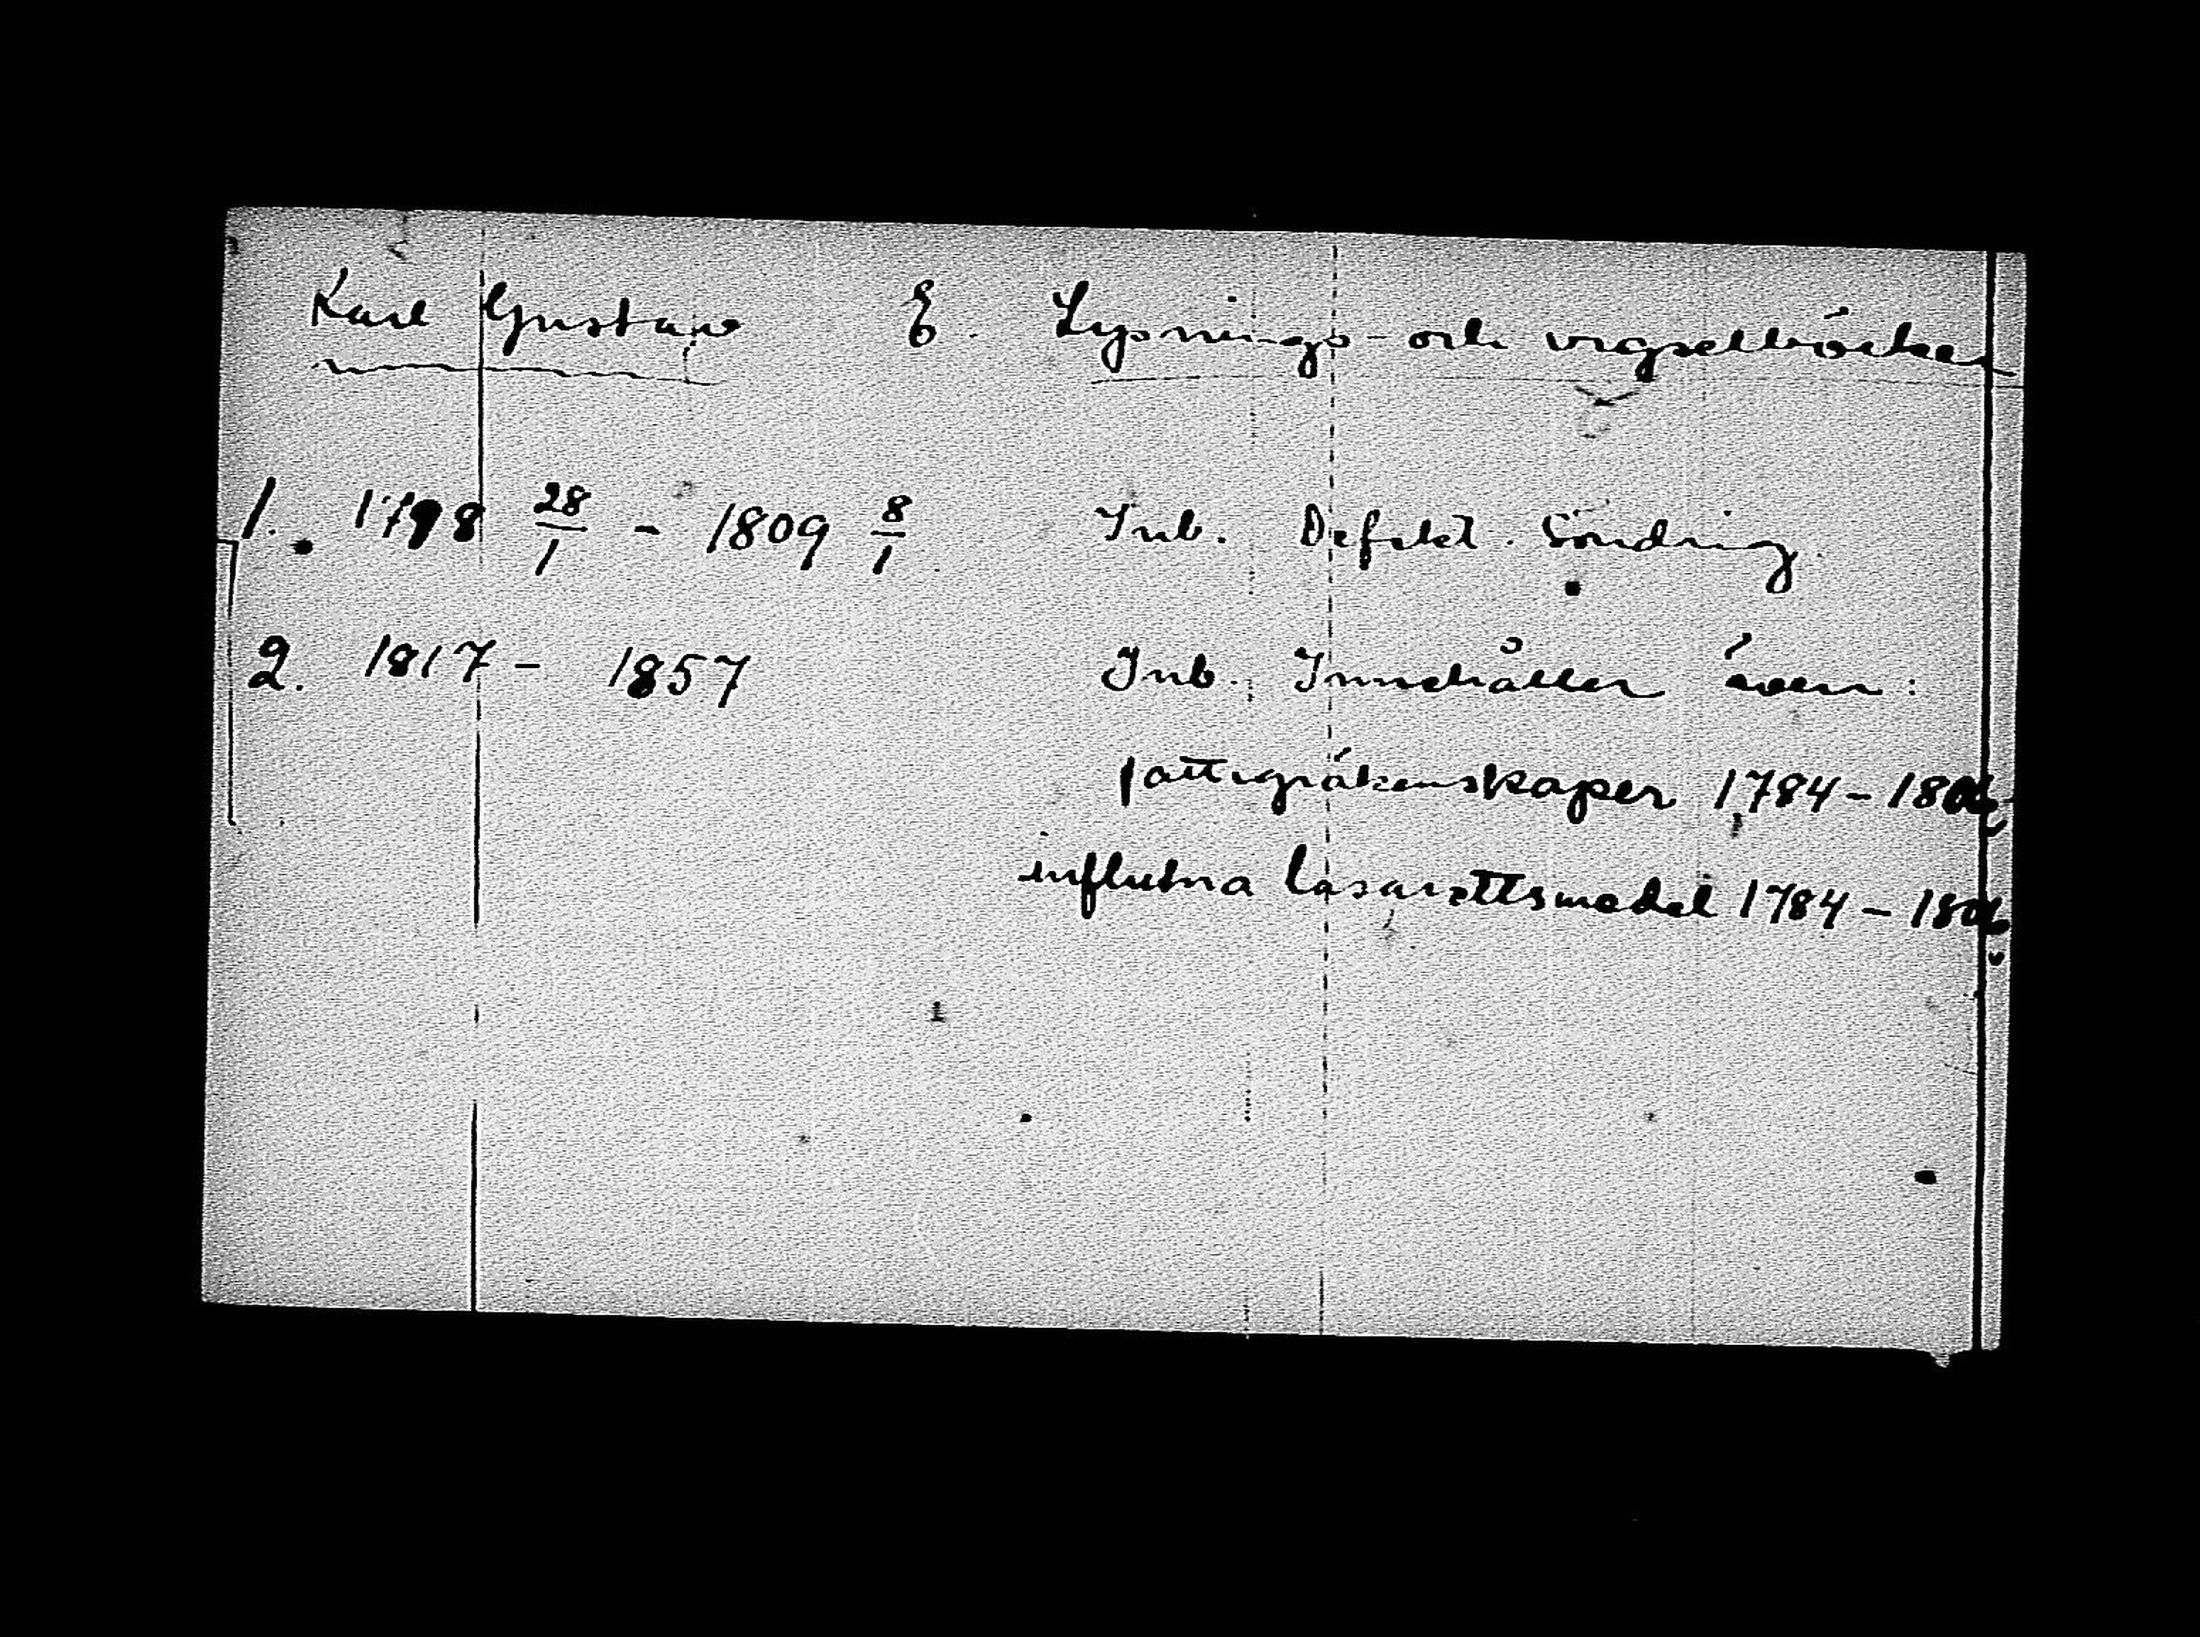 Karl Gustav E. Lysnings- och vigselböcker
1. 1798 28/1 - 1809 8/1 Inb. Defekt. Söndrig.
2. 1817 - 1857 Inb. Innehåller även:
fattigräkenskaper 1784-1806,
influtna lasarettsmedel 1784-1806.